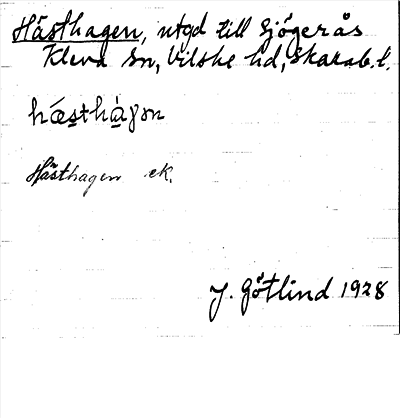 Hästhagen, utgd till Sjögerås
Kleva sn, Vilske hd, Skarab. l.
hǽsthàgən
Hästhagen ek.
J. Götlind 1928